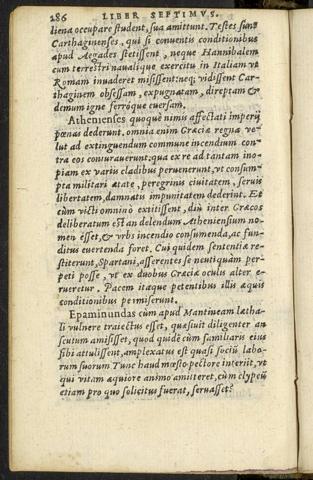 286 LIBER SEPTIMVS.
liena occupare student, sua amittunt. Testes sunt
Carthaginenses, qui si conuentis conditionibus
apud Aegades stetissent, neque Hannibalem
cum terrestri naualique exercitu in Italiam vt
Romam inuaderet misissent: neq; vidissent Car-
thaginem obsessam, expugnatam, direptam &
demum igne ferróque euersam.
Athenienses quoquè nimis affectati imperij
pœnas dederunt. omnia enim Græciæ regna ve-
lut ad extinguendum commune incendium con-
tra eos coniurauerunt: qua ex re ad tantam ino-
piam ex varijs cladibus peruenerunt, vt consum-
pta militari ætate, peregrinis ciuitatem, seruis
libertatem, damnatis impunitatem dederint. Et
cùm victi omninò extitissent, diù inter Græcos
deliberatum est an delendum Atheniensium no-
men esset, & vrbs incendio consumenda, ac fun-
ditus euertenda foret. Cui quidem sententiæ re-
stiterunt, Spartani, asserentes se neutiquàm per-
peti posse, vt ex duobus Græciæ oculis alter e-
rueretur. Pacem itaque petentibus illis æquis
conditionibus permiserunt.
Epaminundas cùm apud Mantineam lætha-
li vulnere traiectus esset, quæsiuit diligenter an
scutum amisisset, quod quidē cùm familiaris eius
sibi attulisset, amplexatus est quasi sociū labo-
rum suorum Tunc haud mœsto pectore interijt, vt
qui vitam æquiore animo amitteret, cùm clypeū
etiam pro quo solicitus fuerat, seruasset?